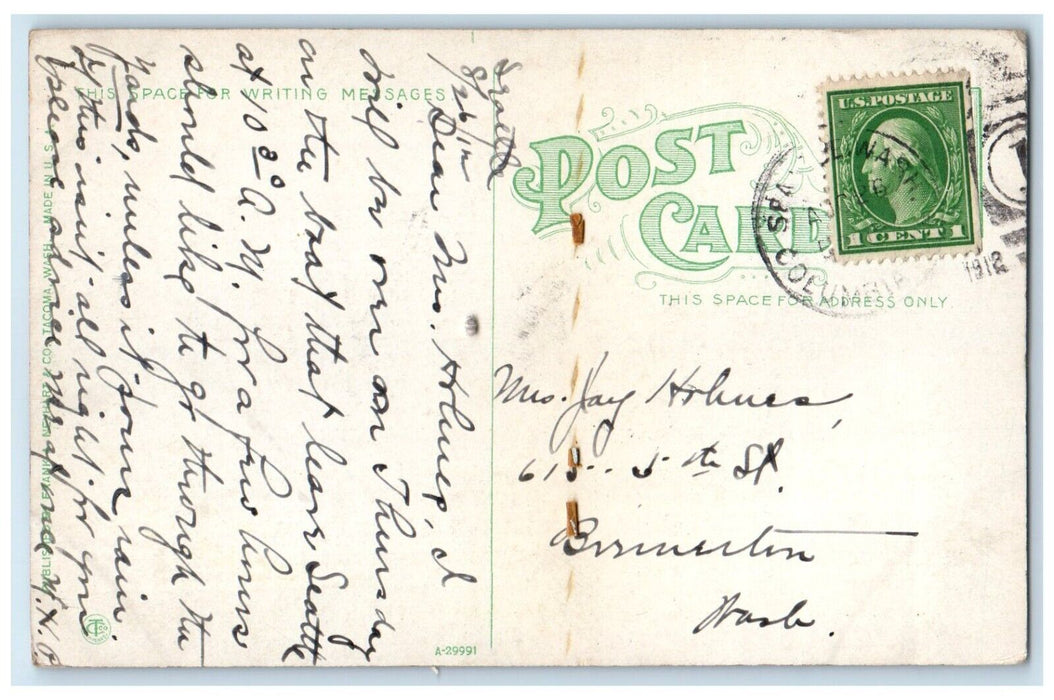 Seattle
8/26/12
Dear Mrs. Holmes, I
will be over on Thursday
on the boat that leave Seattle
at 10 30 A.M. for a few hours
should like to go through the
yards, unless it pours rain.
by this isn't all right for you
please
THIS SPACE FOR WRITING MESSAGES
PUBLISHED BY FRANK NOWELL CO. TACOMA, WASH. MADE IN U.S.
A-29991
POST
CARD
THIS SPACE FOR ADDRESS ONLY.
U.S. POSTAGE
1 CENT 1
WASH.
COLUMBIA
1912
Mrs. Jay Holmes,
615 - 5th St.
Bremerton
Wash.